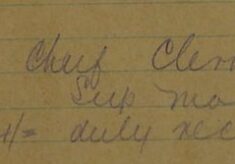 Chief Cler
Sup Ma
duly rec